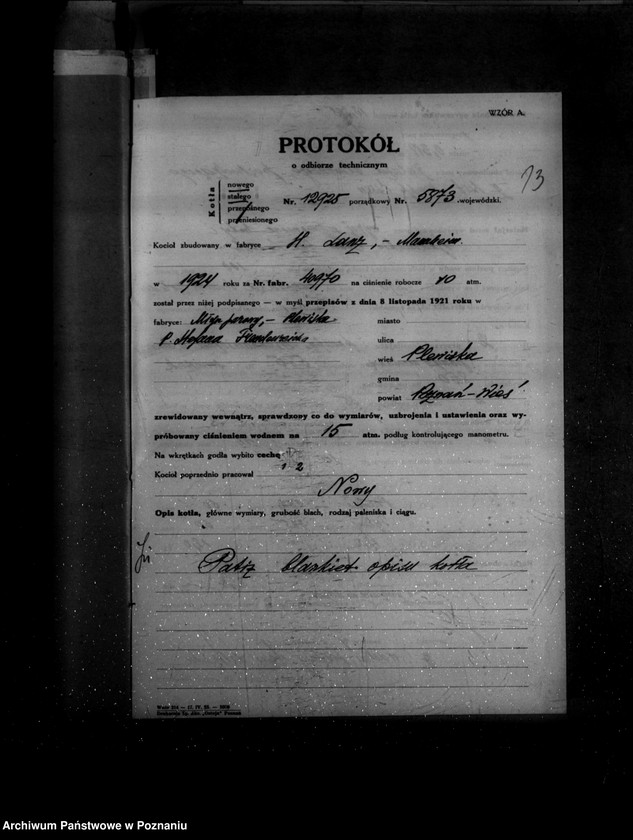 WZÓR A.
PROTOKÓŁ
o odbiorze technicznym
73
Kotła
nowego
stałego
przewoźnego
przeniesionego
Nr. 12925 porządkowy Nr. 5873 wojewódzki.
Kocioł zbudowany w fabryce H. Lanz, - Mannheim.
w 1924 roku za Nr. fabr. 40970 na ciśnienie robocze 10 atm.
został przez niżej podpisanego — w myśl przepisów z dnia 8 listopada 1921 roku w
fabryce: Młyn parowy, - Plewiska
P. Stefana
miasto
ulica
wieś Plewiska
gmina
powiat Poznań-Wieś
zrewidowany wewnątrz, sprawdzony co do wymiarów, uzbrojenia i ustawienia oraz wy-
próbowany ciśnieniem wodnem na 15 atm. podług kontrolującego manometru.
Na wkrętkach godła wybito cechę
1 2
Kocioł poprzednio pracował
Nowy
Opis kotła, główne wymiary, grubość blach, rodzaj paleniska i ciągu.
Patrz blankiet opisu kotła
Archiwum Państwowe w Poznaniu